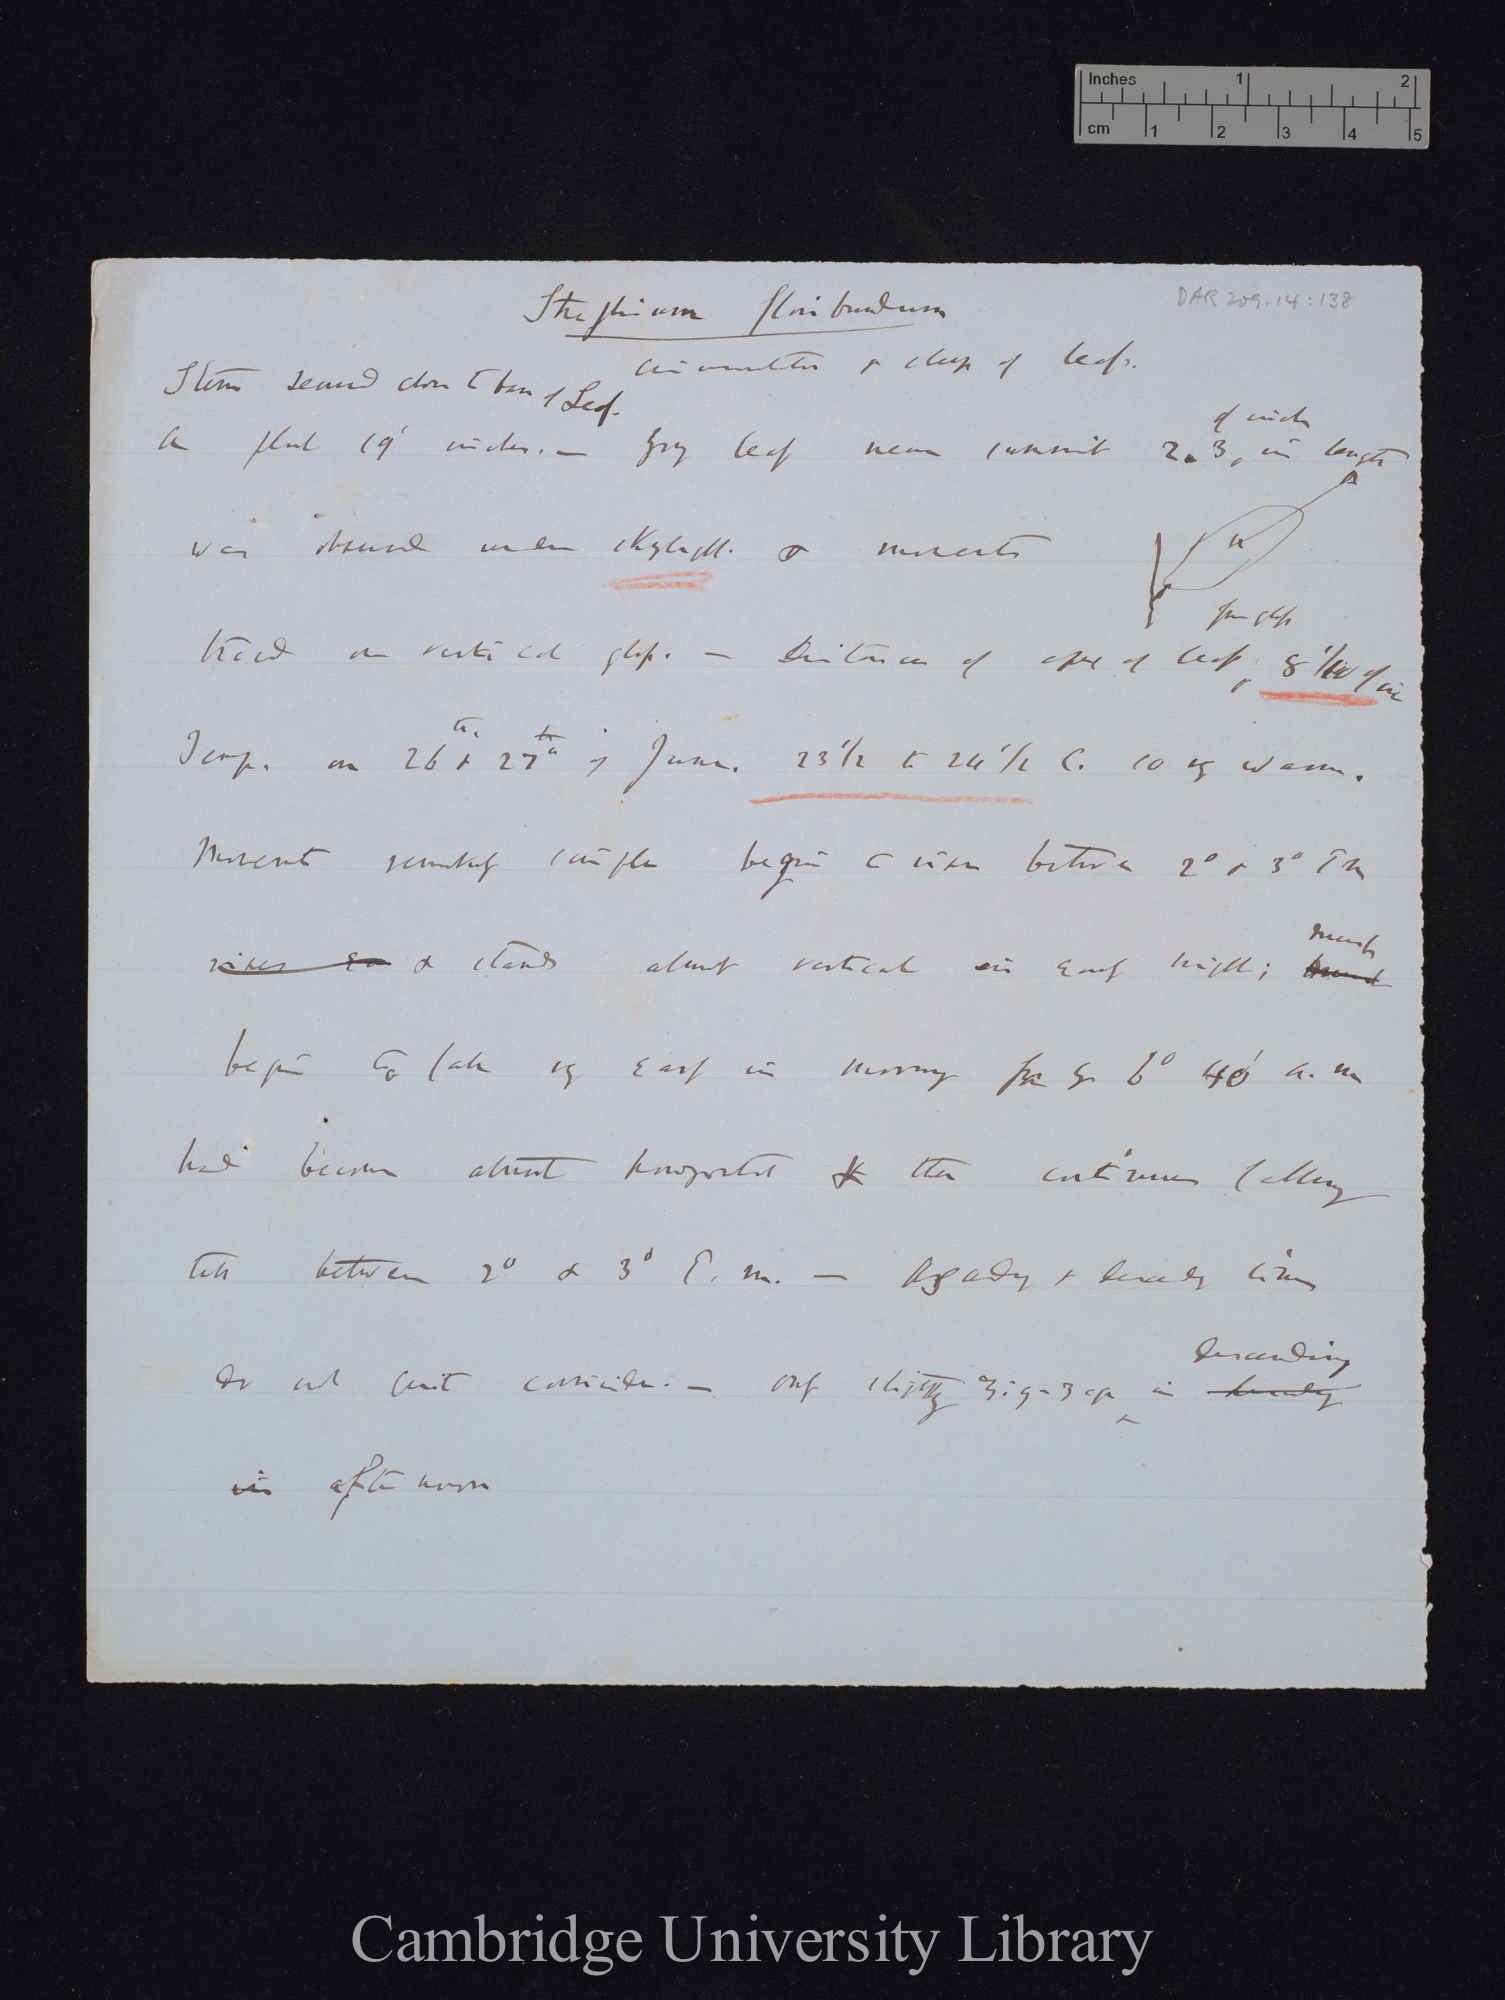 Inches 1 2
cm 1 2 3 4 5
DAR 209.14:138
Strephium floribundum
circumnutation & sleep of leaf.
Stem secured close to base of Leaf.
A plant 19 inches. — Young leaf near summit 2.3, of inch in length
was observed under skylight. & movements
traced on vertical glass. — Distance of apex of leaf, from glass 8 1/10 of in
Temp. on 26th & 27th of June. 23 1/2 to 24 1/2 C. so very warm.
Movement remarkably simple begins to rise between 2° & 3° P.m
rises & stands almost vertical in early night;
begins to fall very early in morning for by 6° 40' a.m
had become almost horizontal & then continues falling
till between 2° & 3° P.m. — Ascending & descending lines
do not quite coincide. — only slightly zig-zag, in descending
in afternoon
Cambridge University Library